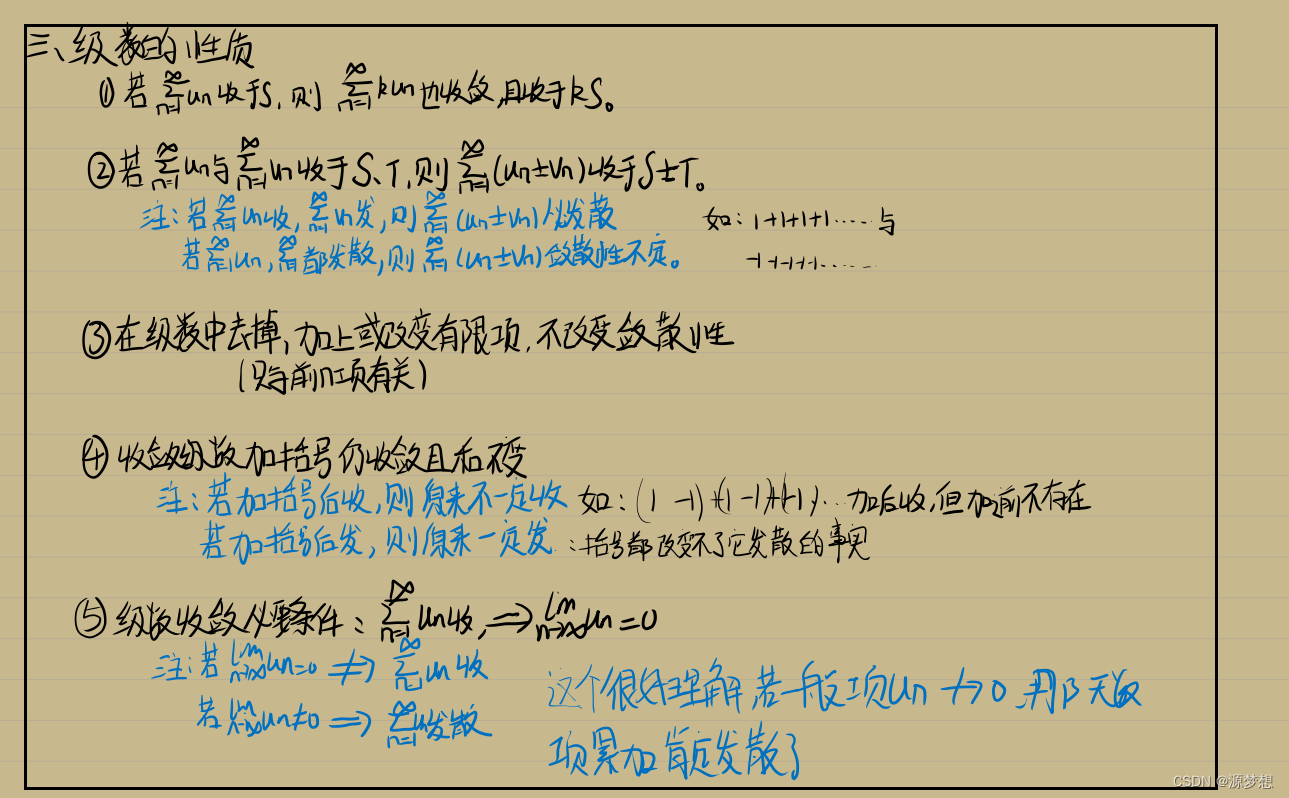 三、级数的性质
① 若 ∑_{n=1}^{∞} un 收于S, 则 ∑_{n=1}^{∞} kun 也收敛,且收于kS。
② 若 ∑_{n=1}^{∞} un 与 ∑_{n=1}^{∞} vn 收于 S、T, 则 ∑_{n=1}^{∞} (un±vn) 收于 S±T。
注: 若 ∑_{n=1}^{∞} un 收, ∑_{n=1}^{∞} vn 发, 则 ∑_{n=1}^{∞} (un±vn) 必发散 如: 1+1+1+1…… 与
若 ∑_{n=1}^{∞} un, ∑_{n=1}^{∞} 都发散, 则 ∑_{n=1}^{∞} (un±vn) 敛散性不定。 -1-1-1-1……
③ 在级数中去掉, 加上或改变有限项, 不改变敛散性
(只与前n项有关)
④ 收敛级数加括号仍收敛且和不变
注: 若加括号后收, 则原来不一定收 如: (1 -1)+(1-1)+(1-1)… 加后收, 但加之前不存在
若加括号后发, 则原来一定发. : 括号都改变不了它发散的事实
⑤ 级数收敛必要条件: ∑_{n=1}^{∞} un 收, ⇒ lim_{n→∞} un = 0
注: 若 lim_{n→∞} un=0 ⇏ ∑_{n=1}^{∞} un 收
若 lim_{n→∞} un≠0 ⇒ ∑_{n=1}^{∞} un 发散
这个很好理解, 若一般项 un ↛ 0, 那无数
项累加肯定发散了
CSDN @源梦想